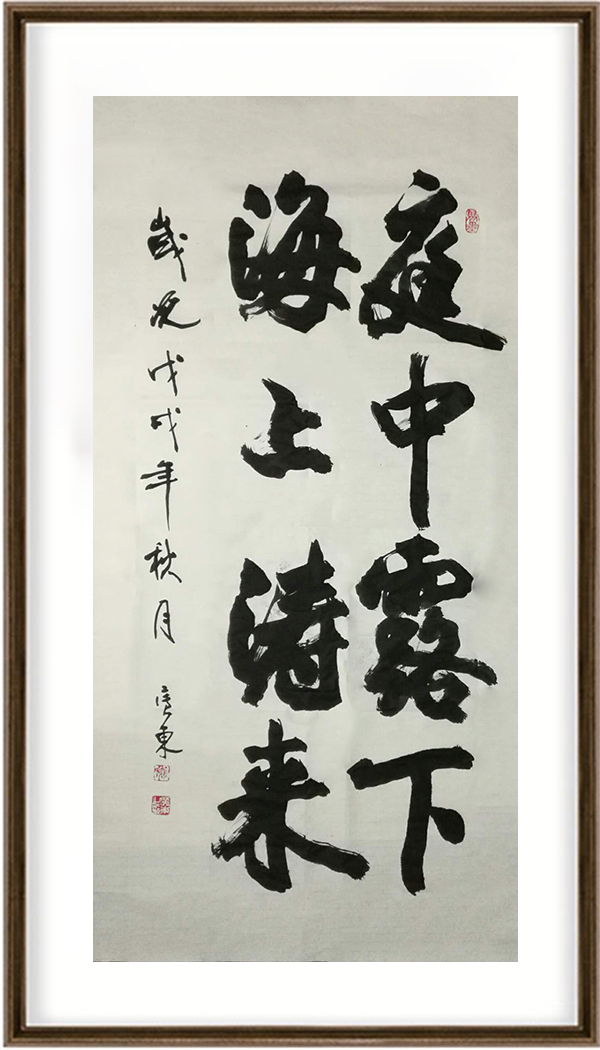 庭中露下
海上涛来
歲次戊戌年秋月 東